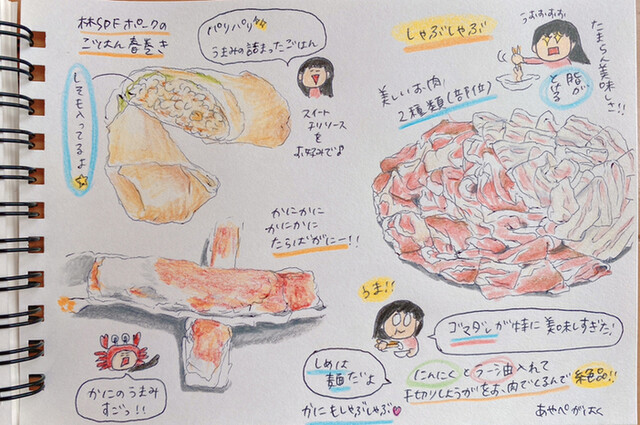 林SPFポークの
ごはん春巻き
パリパリ
うまみの詰まったごはん
しそも入ってるよ
スイート
チリソース
を
お好みで♪
かにかに
かにかに
たらばがにー!!
かにのうまみ
すごっ!!
しゃぶしゃぶ
うむむむむ
たまらん美味しさ!!
脂が
とける
美しいお肉
2種類(部位)
うま!!
ゴマダレが特に美味しすぎた!
にんにくとラー油入れて
千切りしょうがをお肉でくるんで絶品!!
しめは
麺だよ
かにもしゃぶしゃぶ♥
あやぺがはく